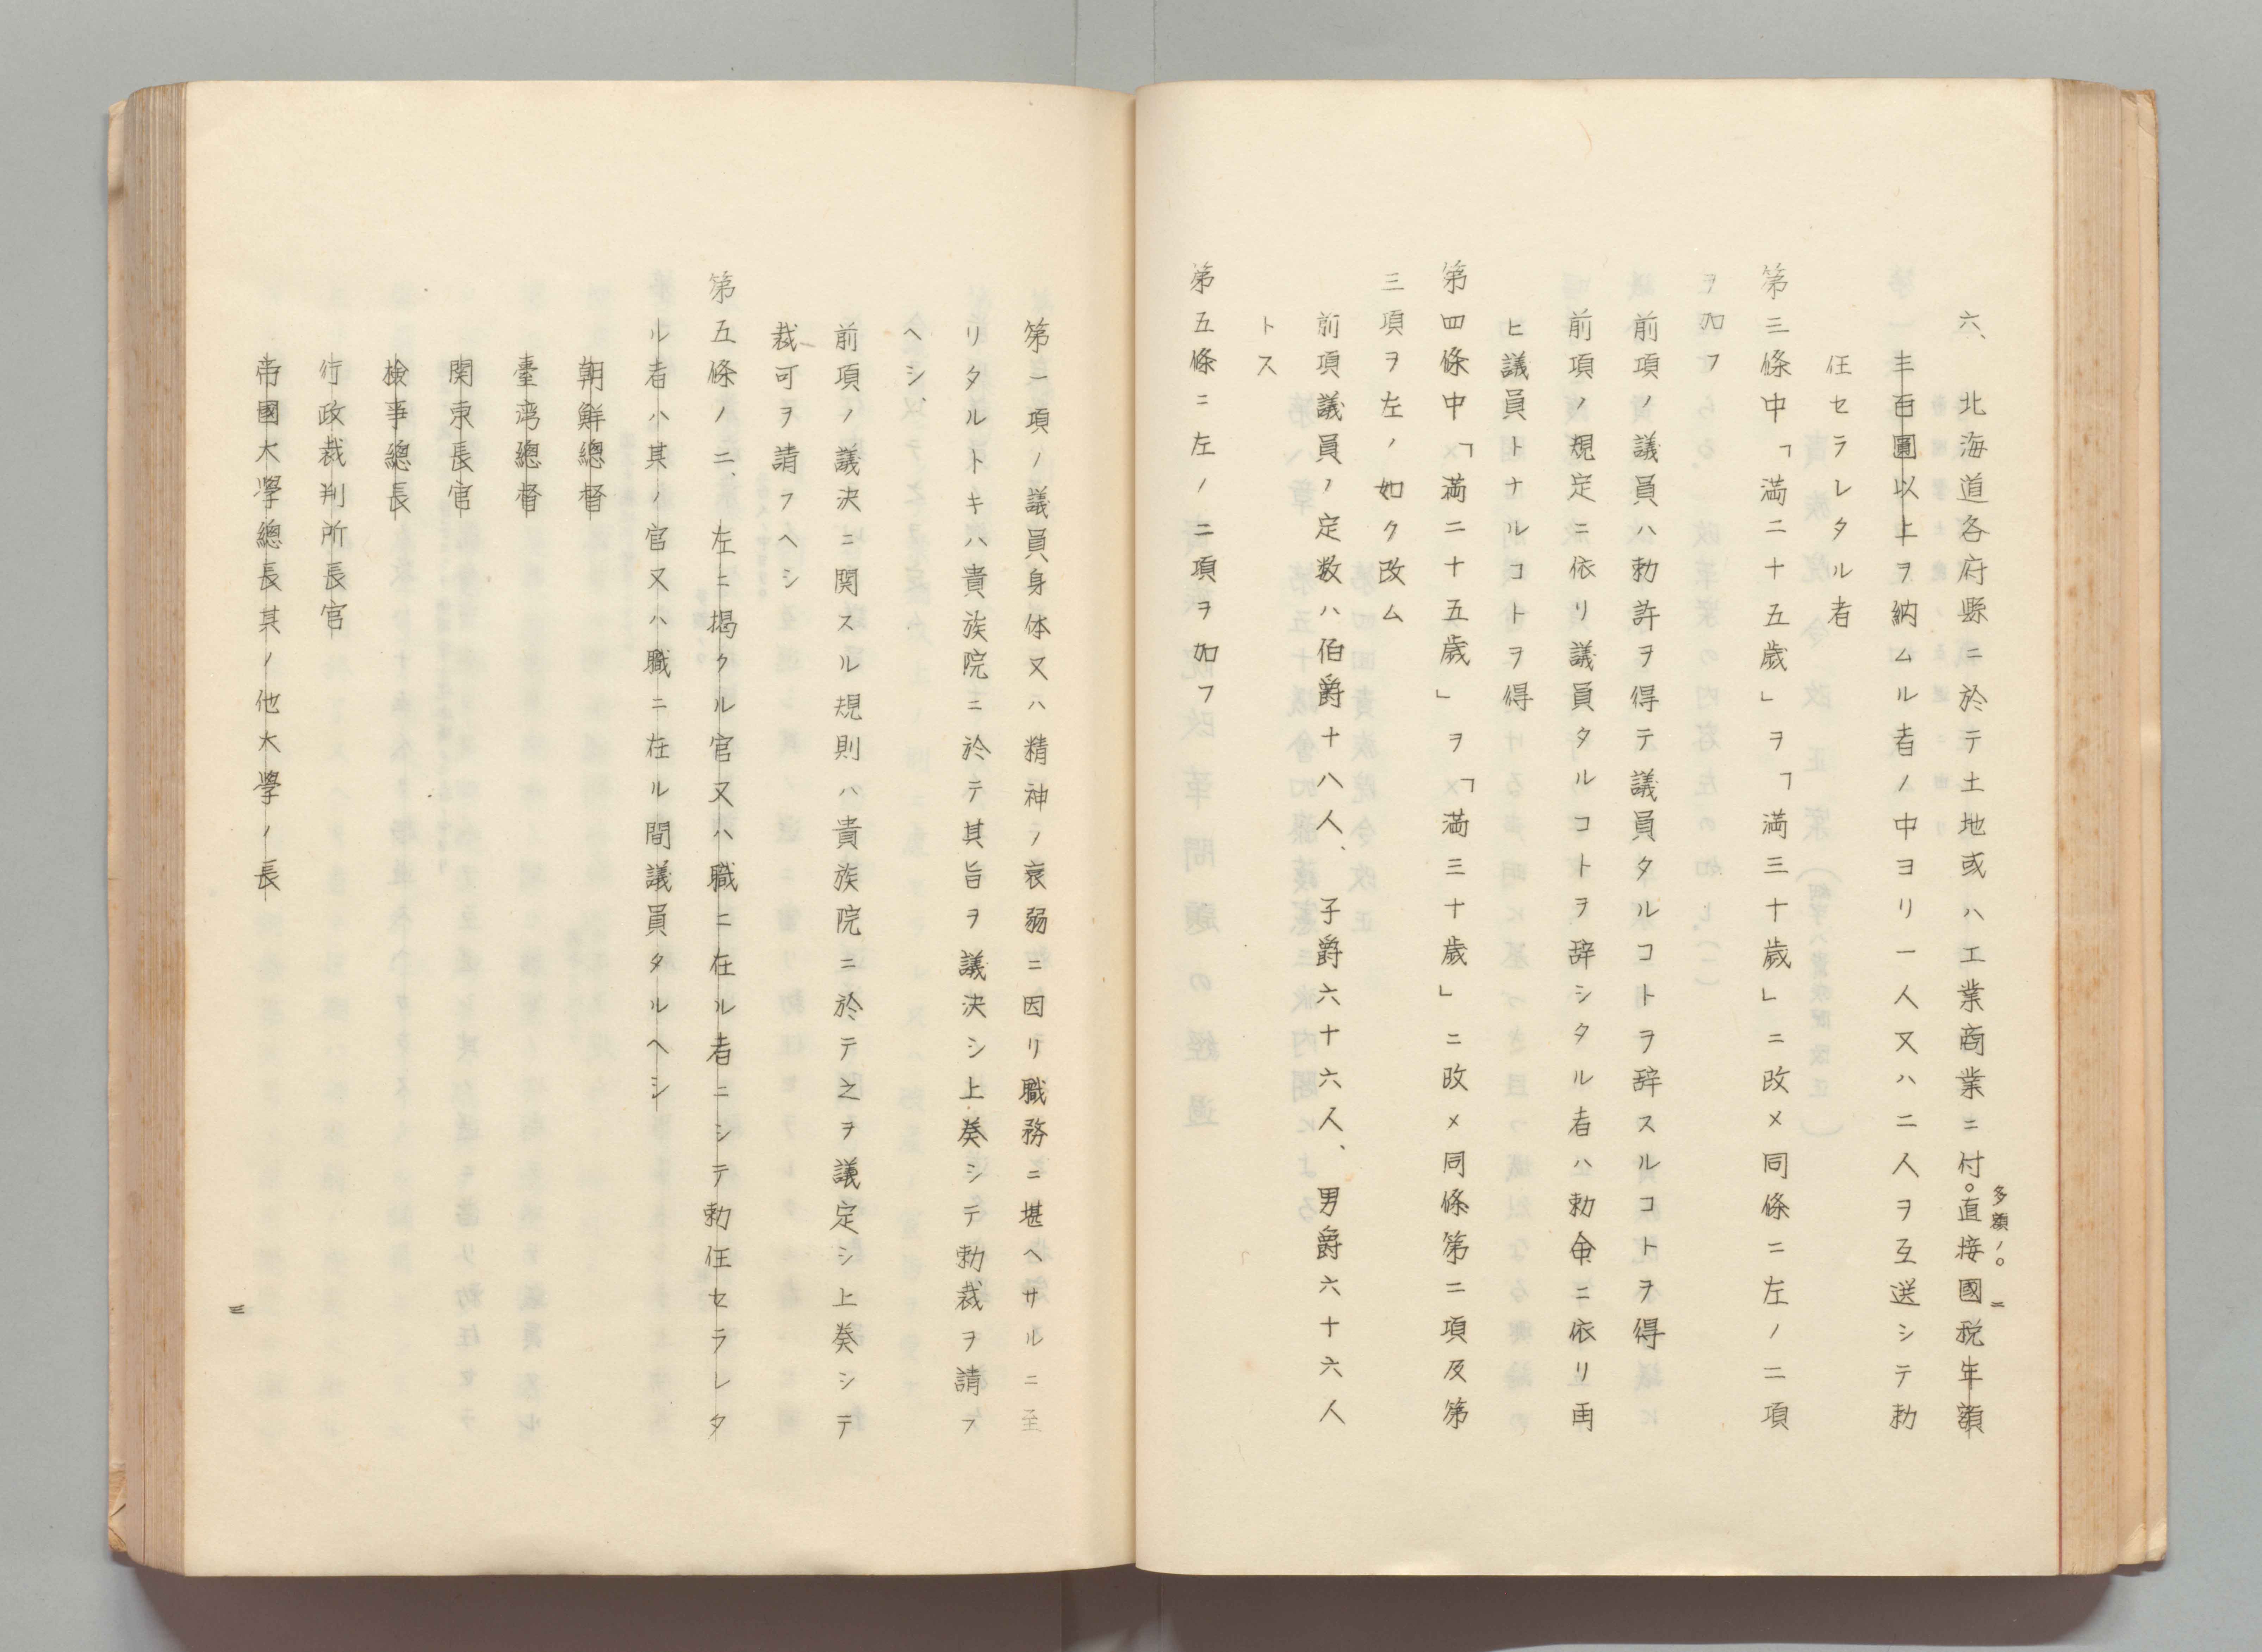 六、北海道各府縣ニ於テ土地或ハ工業商業ニ付。直接國税年額
多額ノ。
三百圓以上ヲ納ムル者ノ中ヨリ一人又ハ二人ヲ互選シテ勅
任セラレタル者
第三條中「満二十五歳」ヲ「満三十歳」ニ改メ同條ニ左ノ二項
ヲ加フ
前項ノ議員ハ勅許ヲ得テ議員タルコトヲ辞スルコトヲ得
前項ノ規定ニ依リ議員タルコトヲ辞シタル者ハ勅命ニ依リ再
ヒ議員トナルコトヲ得
第四條中「満二十五歳」ヲ「満三十歳」ニ改メ同條第二項及第
三項ヲ左ノ如ク改ム
前項議員ノ定数ハ伯爵十八人、子爵六十六人、男爵六十六人
トス
第五條ニ左ノ二項ヲ加フ
第一項ノ議員身体又ハ精神ノ衰弱ニ因リ職務ニ堪ヘサルニ至
リタルトキハ貴族院ニ於テ其旨ヲ議決シ上奏シテ勅裁ヲ請フ
ヘシ、
前項ノ議決ニ関スル規則ハ貴族院ニ於テ之ヲ議定シ上奏シテ
裁可ヲ請フヘシ
第五條ノ二、左ニ掲クル官又ハ職ニ在ル者ニシテ勅任セラレタ
ル者ハ其ノ官又ハ職ニ在ル間議員タルヘシ
朝鮮總督
臺湾總督
関東長官
檢事總長
行政裁判所長官
帝國大學總長其ノ他大學ノ長
三